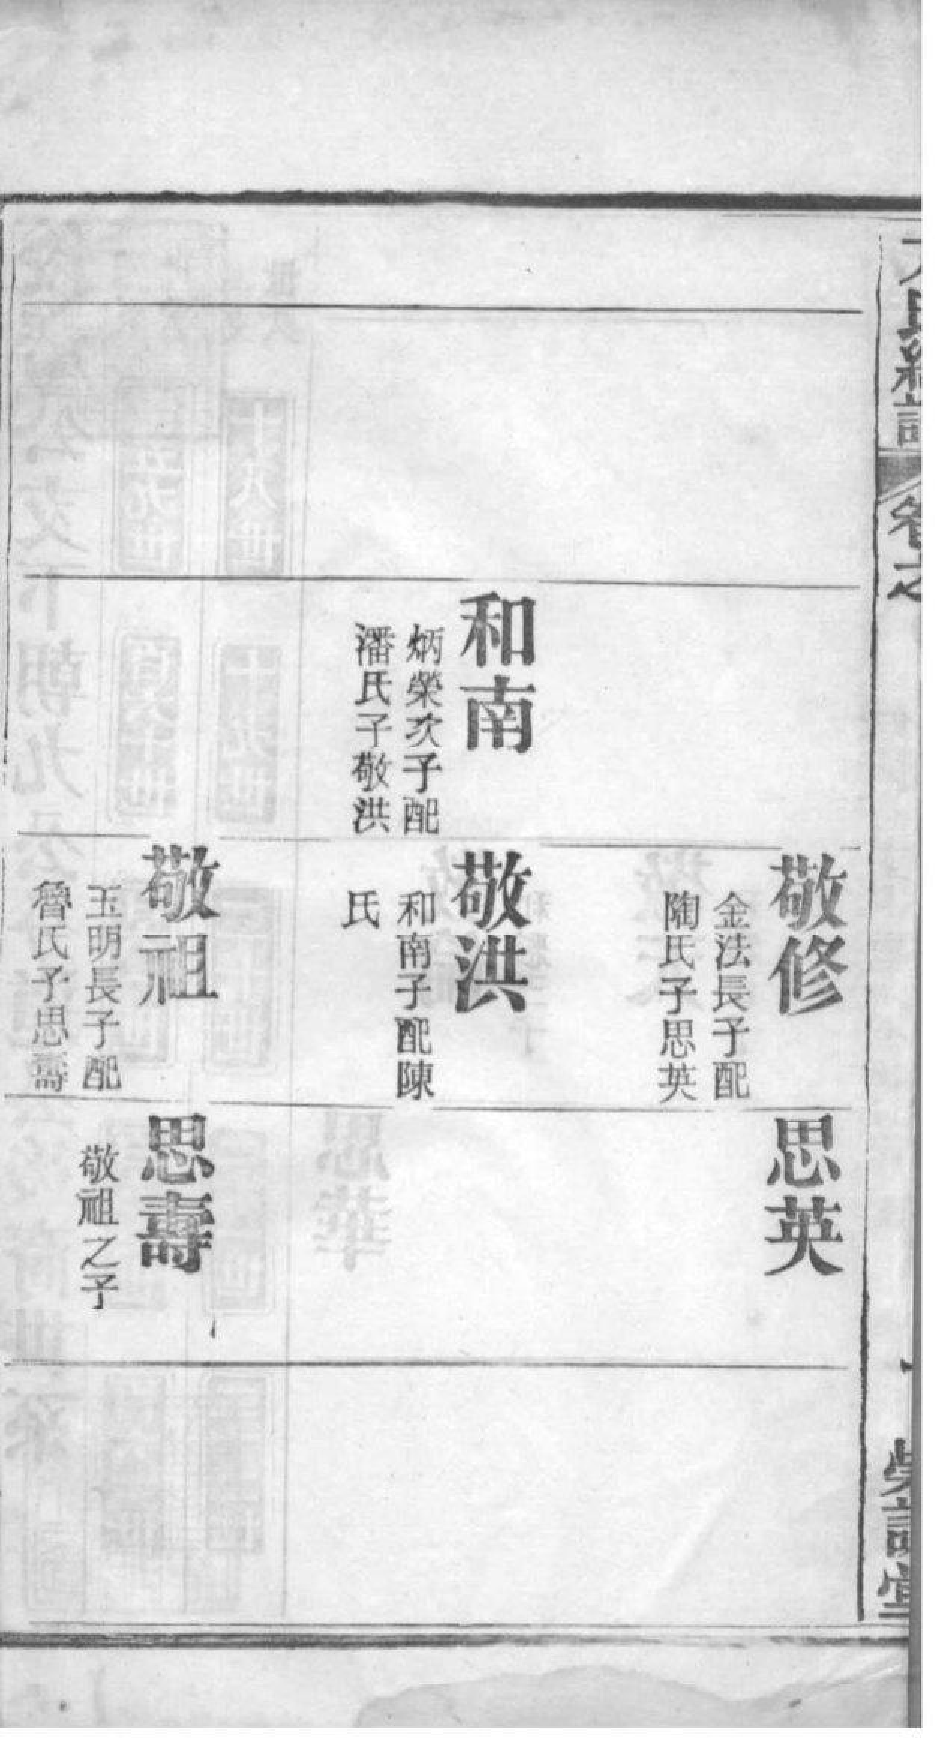 和南
炳榮次子配
潘氏子敬洪
敬修
金法長子配
陶氏子思英
敬洪
和南子配陳
氏
敬祖
玉明長子配
魯氏子思壽
思英
思壽
敬祖之子